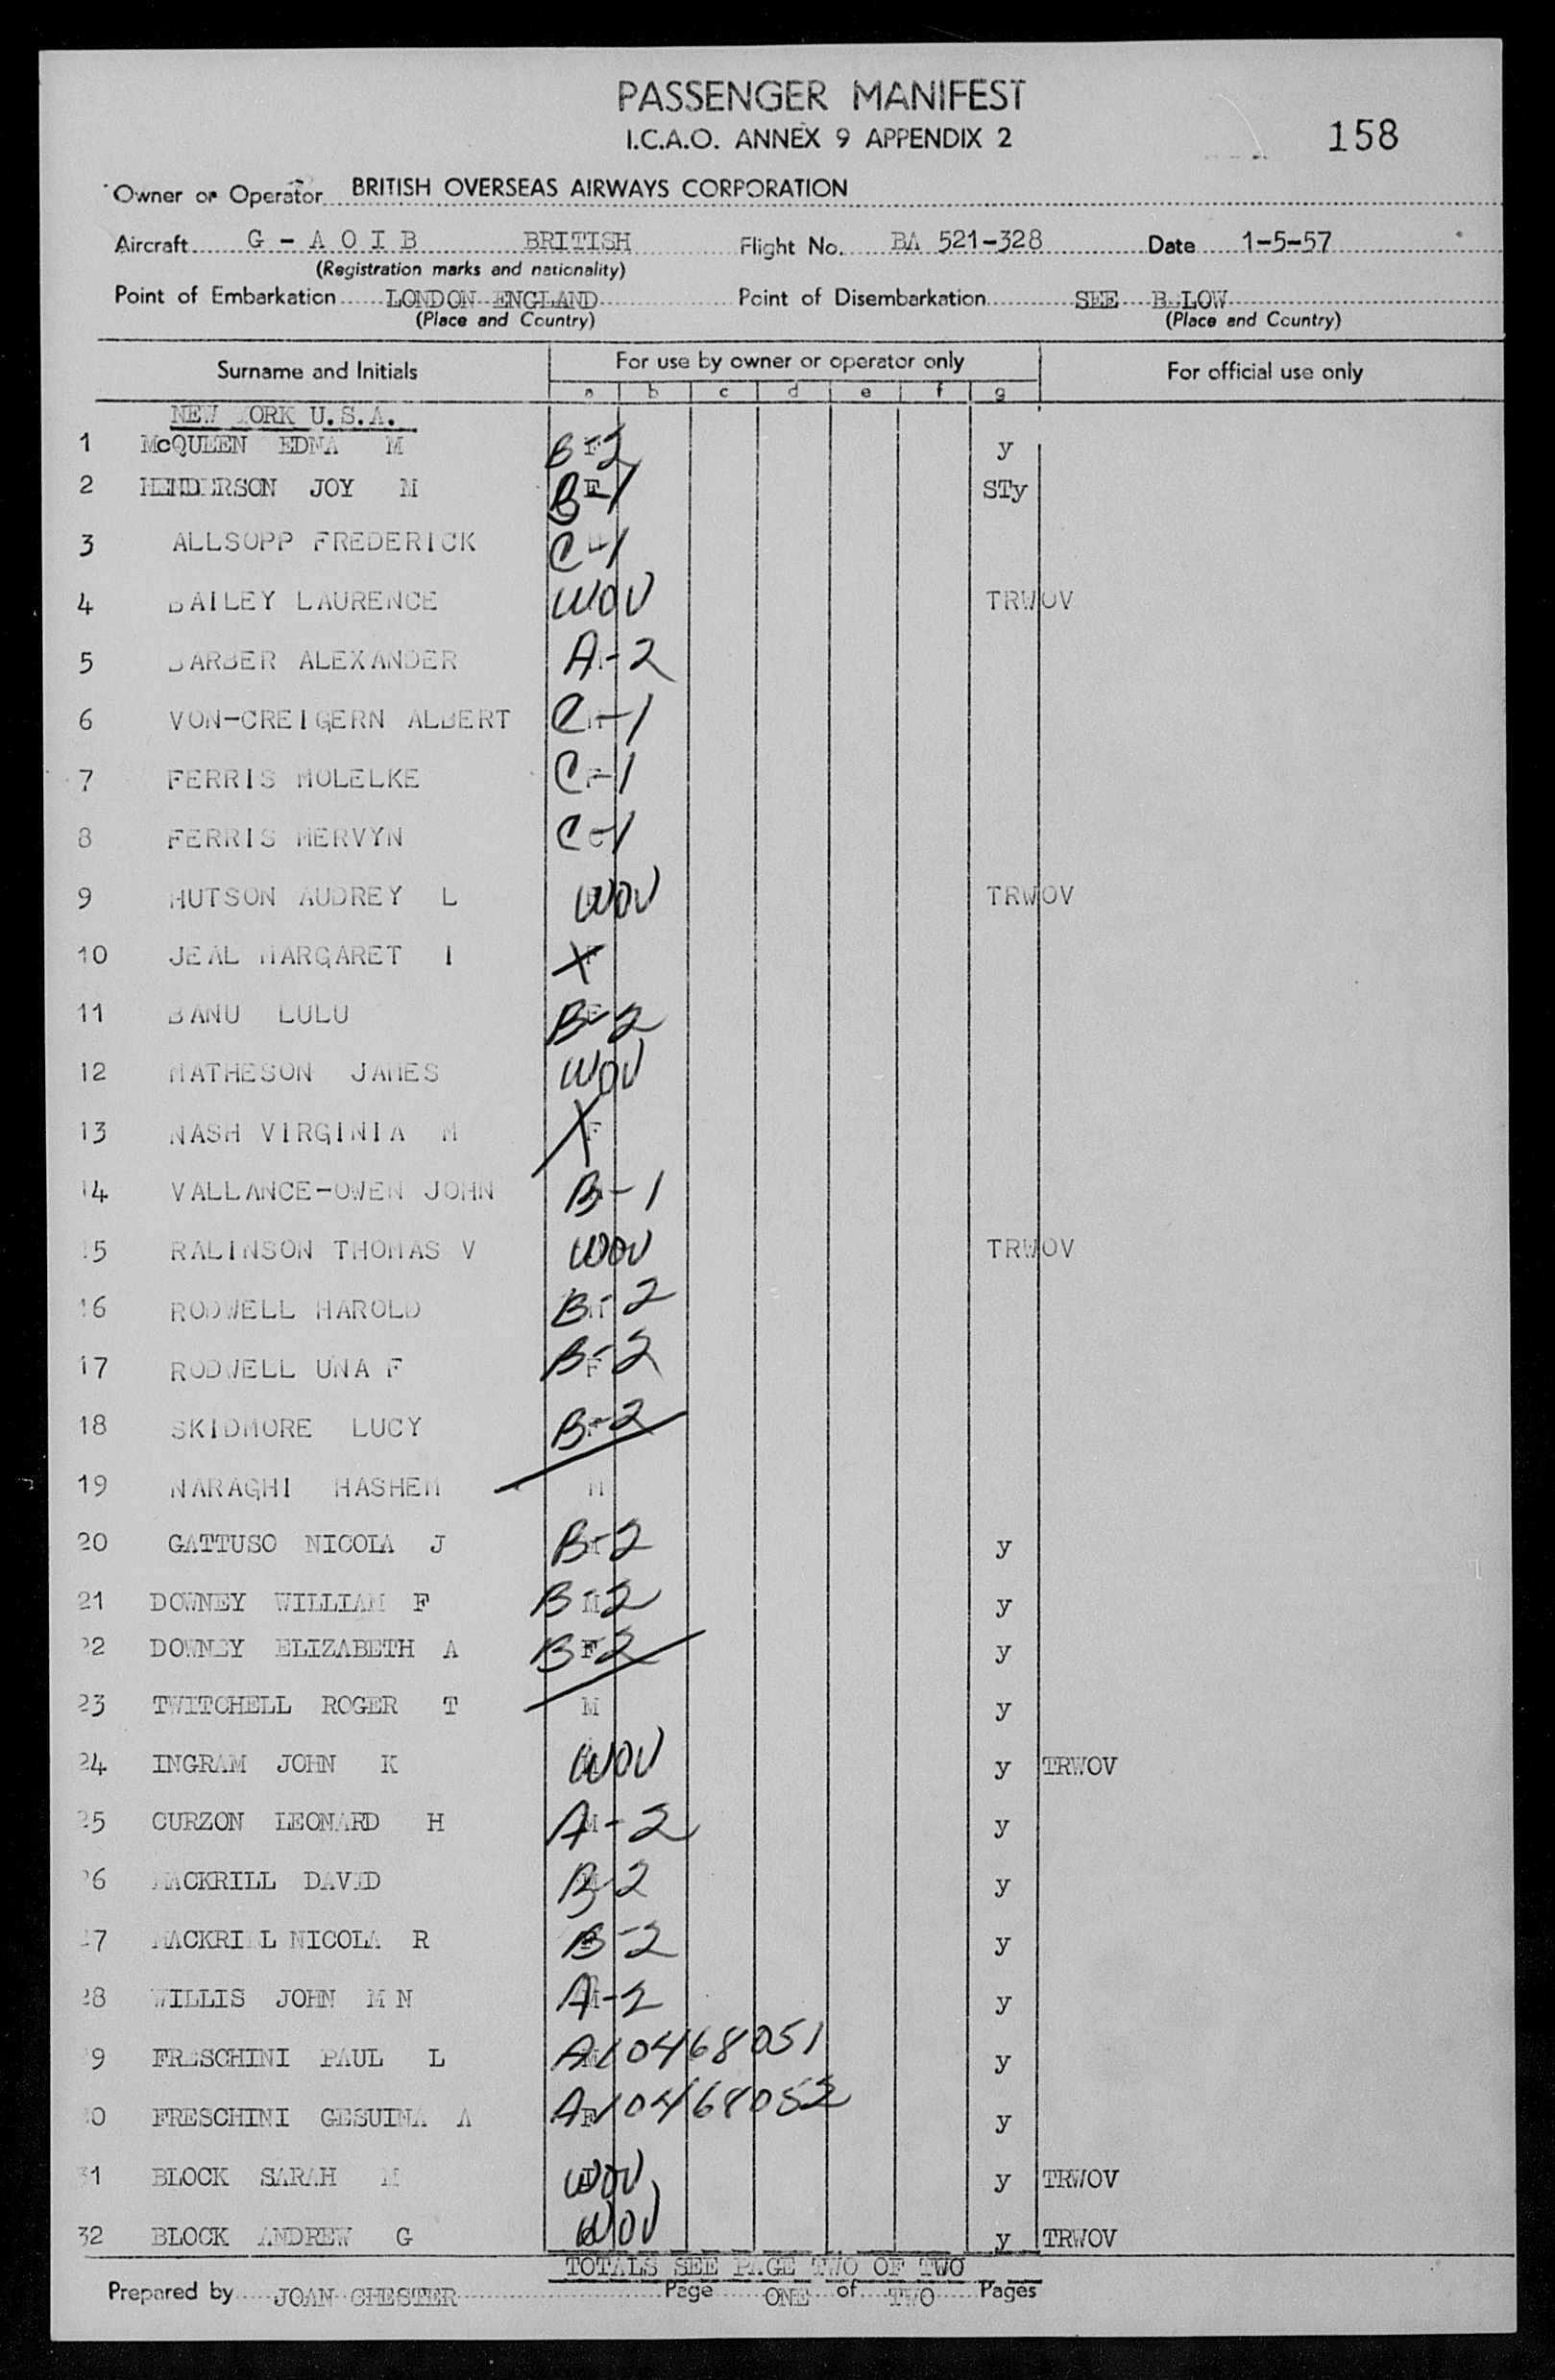 PASSENGER MANIFEST
I.C.A.O. ANNEX 9 APPENDIX 2
158
Owner or Operator BRITISH OVERSEAS AIRWAYS CORPORATION
Aircraft G - A O I B BRITISH Flight No. BA 521-328 Date 1-5-57
(Registration marks and nationality)
Point of Embarkation LONDON ENGLAND Point of Disembarkation SEE B LOW
(Place and Country) (Place and Country)
Surname and Initials For use by owner or operator only For official use only
a b c d e f g
NEW YORK U.S.A.
1 McQUEEN EDNA M B-2 F y
2 HENDERSON JOY M B-1 F STy
3 ALLSOPP FREDERICK C-1
4 BAILEY LAURENCE WOV TRWOV
5 BARBER ALEXANDER A-2
6 VON-CREIGERN ALBERT C-1
7 FERRIS MOLELKE C-1 F
8 FERRIS MERVYN C-1
9 HUTSON AUDREY L WOV TRWOV
10 JEAL MARGARET I X F
11 BANU LULU B-2 F
12 MATHESON JAMES WOV
13 NASH VIRGINIA M X F
14 VALLANCE-OWEN JOHN B-1
15 RALINSON THOMAS V WOV TRWOV
16 RODWELL HAROLD B-2
17 RODWELL UNA F B-2 F
18 SKIDMORE LUCY B-2
19 NARAGHI HASHEM M
20 GATTUSO NICOLA J B-2 y
21 DOWNEY WILLIAM F B-2 M y
22 DOWNEY ELIZABETH A B-2 F y
23 TWITCHELL ROGER T M y
24 INGRAM JOHN K WOV y TRWOV
25 CURZON LEONARD H A-2 M y
26 MACKRILL DAVID B-2 y
27 MACKRILL NICOLA R B-2 y
28 WILLIS JOHN M N A-2 M y
29 FRESCHINI PAUL L A10468051 M y
30 FRESCHINI GESUINA A A10468052 F y
31 BLOCK SARAH M WOV y TRWOV
32 BLOCK ANDREW G WOV y TRWOV
TOTALS SEE PAGE TWO OF TWO
Prepared by JOAN CHESTER Page ONE of TWO Pages